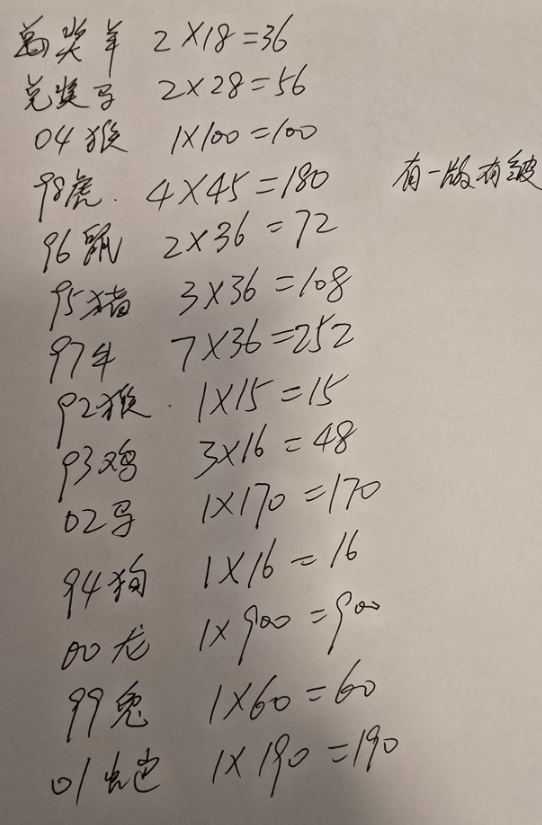 兑奖羊 2×18=36
兑奖马 2×28=56
04猴 1×100=100
98虎. 4×45=180 有一版有皱
96鼠 2×36=72
95猪 3×36=108
97牛 7×36=252
92猴. 1×15=15
93鸡 3×16=48
02马 1×170=170
94狗 1×16=16
00龙 1×900=900
99兔 1×60=60
01蛇 1×190=190